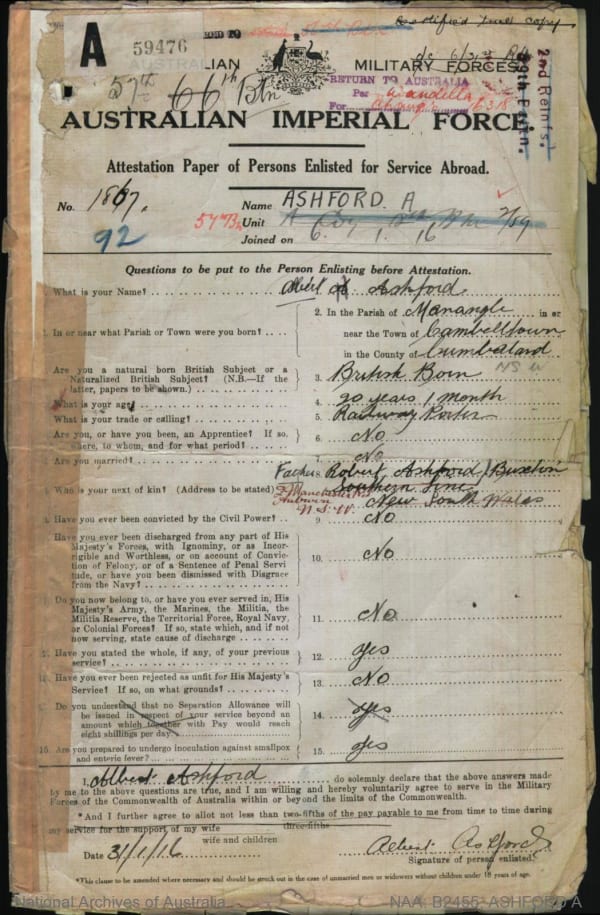 A
59476
Certified true copy
AUSTRALIAN MILITARY FORCES.
57th 66th Btn
RETURN TO AUSTRALIA
Per
For
2nd Reinfs.
59th Battn.
AUSTRALIAN IMPERIAL FORCE.
Attestation Paper of Persons Enlisted for Service Abroad.
No. 1867. Name ASHFORD. A
92 57 Bn Unit
Joined on 6. 1. 16
Questions to be put to the Person Enlisting before Attestation.
What is your Name? Albert A Ashford
2. In the Parish of Manangle in or
In or near what Parish or Town were you born? near the Town of Cambelltown
in the County of Cumberland
NSW
Are you a natural born British Subject or a
Naturalized British Subject? (N.B.—If the 3. British Born
latter, papers to be shown.)
What is your age? 4. 20 years 1 month
What is your trade or calling? 5. Railway Porter
Are you, or have you been, an Apprentice? If so, 6. No
where, to whom, and for what period?
Are you married? 7. No
Father 8. Robert Ashford, Buxton
Who is your next of kin? (Address to be stated) Southern Line
Auburn New South Wales
N.S.W.
Have you ever been convicted by the Civil Power? 9. No
Have you ever been discharged from any part of His
Majesty's Forces, with Ignominy, or as Incor-
rigible and Worthless, or on account of Convic- 10. No
tion of Felony, or of a Sentence of Penal Servi
tude, or have you been dismissed with Disgrace
from the Navy?
Do you now belong to, or have you ever served in, His
Majesty's Army, the Marines, the Militia, the
Militia Reserve, the Territorial Force, Royal Navy, 11. No
or Colonial Forces? If so, state which, and if not
now serving, state cause of discharge
Have you stated the whole, if any, of your previous 12. yes
service?
Have you ever been rejected as unfit for His Majesty's 13. No
Service? If so, on what grounds?
Do you understand that no Separation Allowance will
be issued in respect of your service beyond an
amount which together with Pay would reach 14. yes
eight shillings per day.
15. Are you prepared to undergo inoculation against smallpox 15. yes
and enteric fever?
I, Albert Ashford do solemnly declare that the above answers made
by me to the above questions are true, and I am willing and hereby voluntarily agree to serve in the Military
Forces of the Commonwealth of Australia within or beyond the limits of the Commonwealth.
*And I further agree to allot not less than two-fifths of the pay payable to me from time to time during
three-fifths
my service for the support of my wife
wife and children
Date 31/1/16 Albert Ashford
Signature of person enlisted.
*This clause to be amended where necessary and should be struck out in the case of unmarried men or widowers without children under 18 years of age.
National Archives of Australia NAA: B2455, ASHFORD A